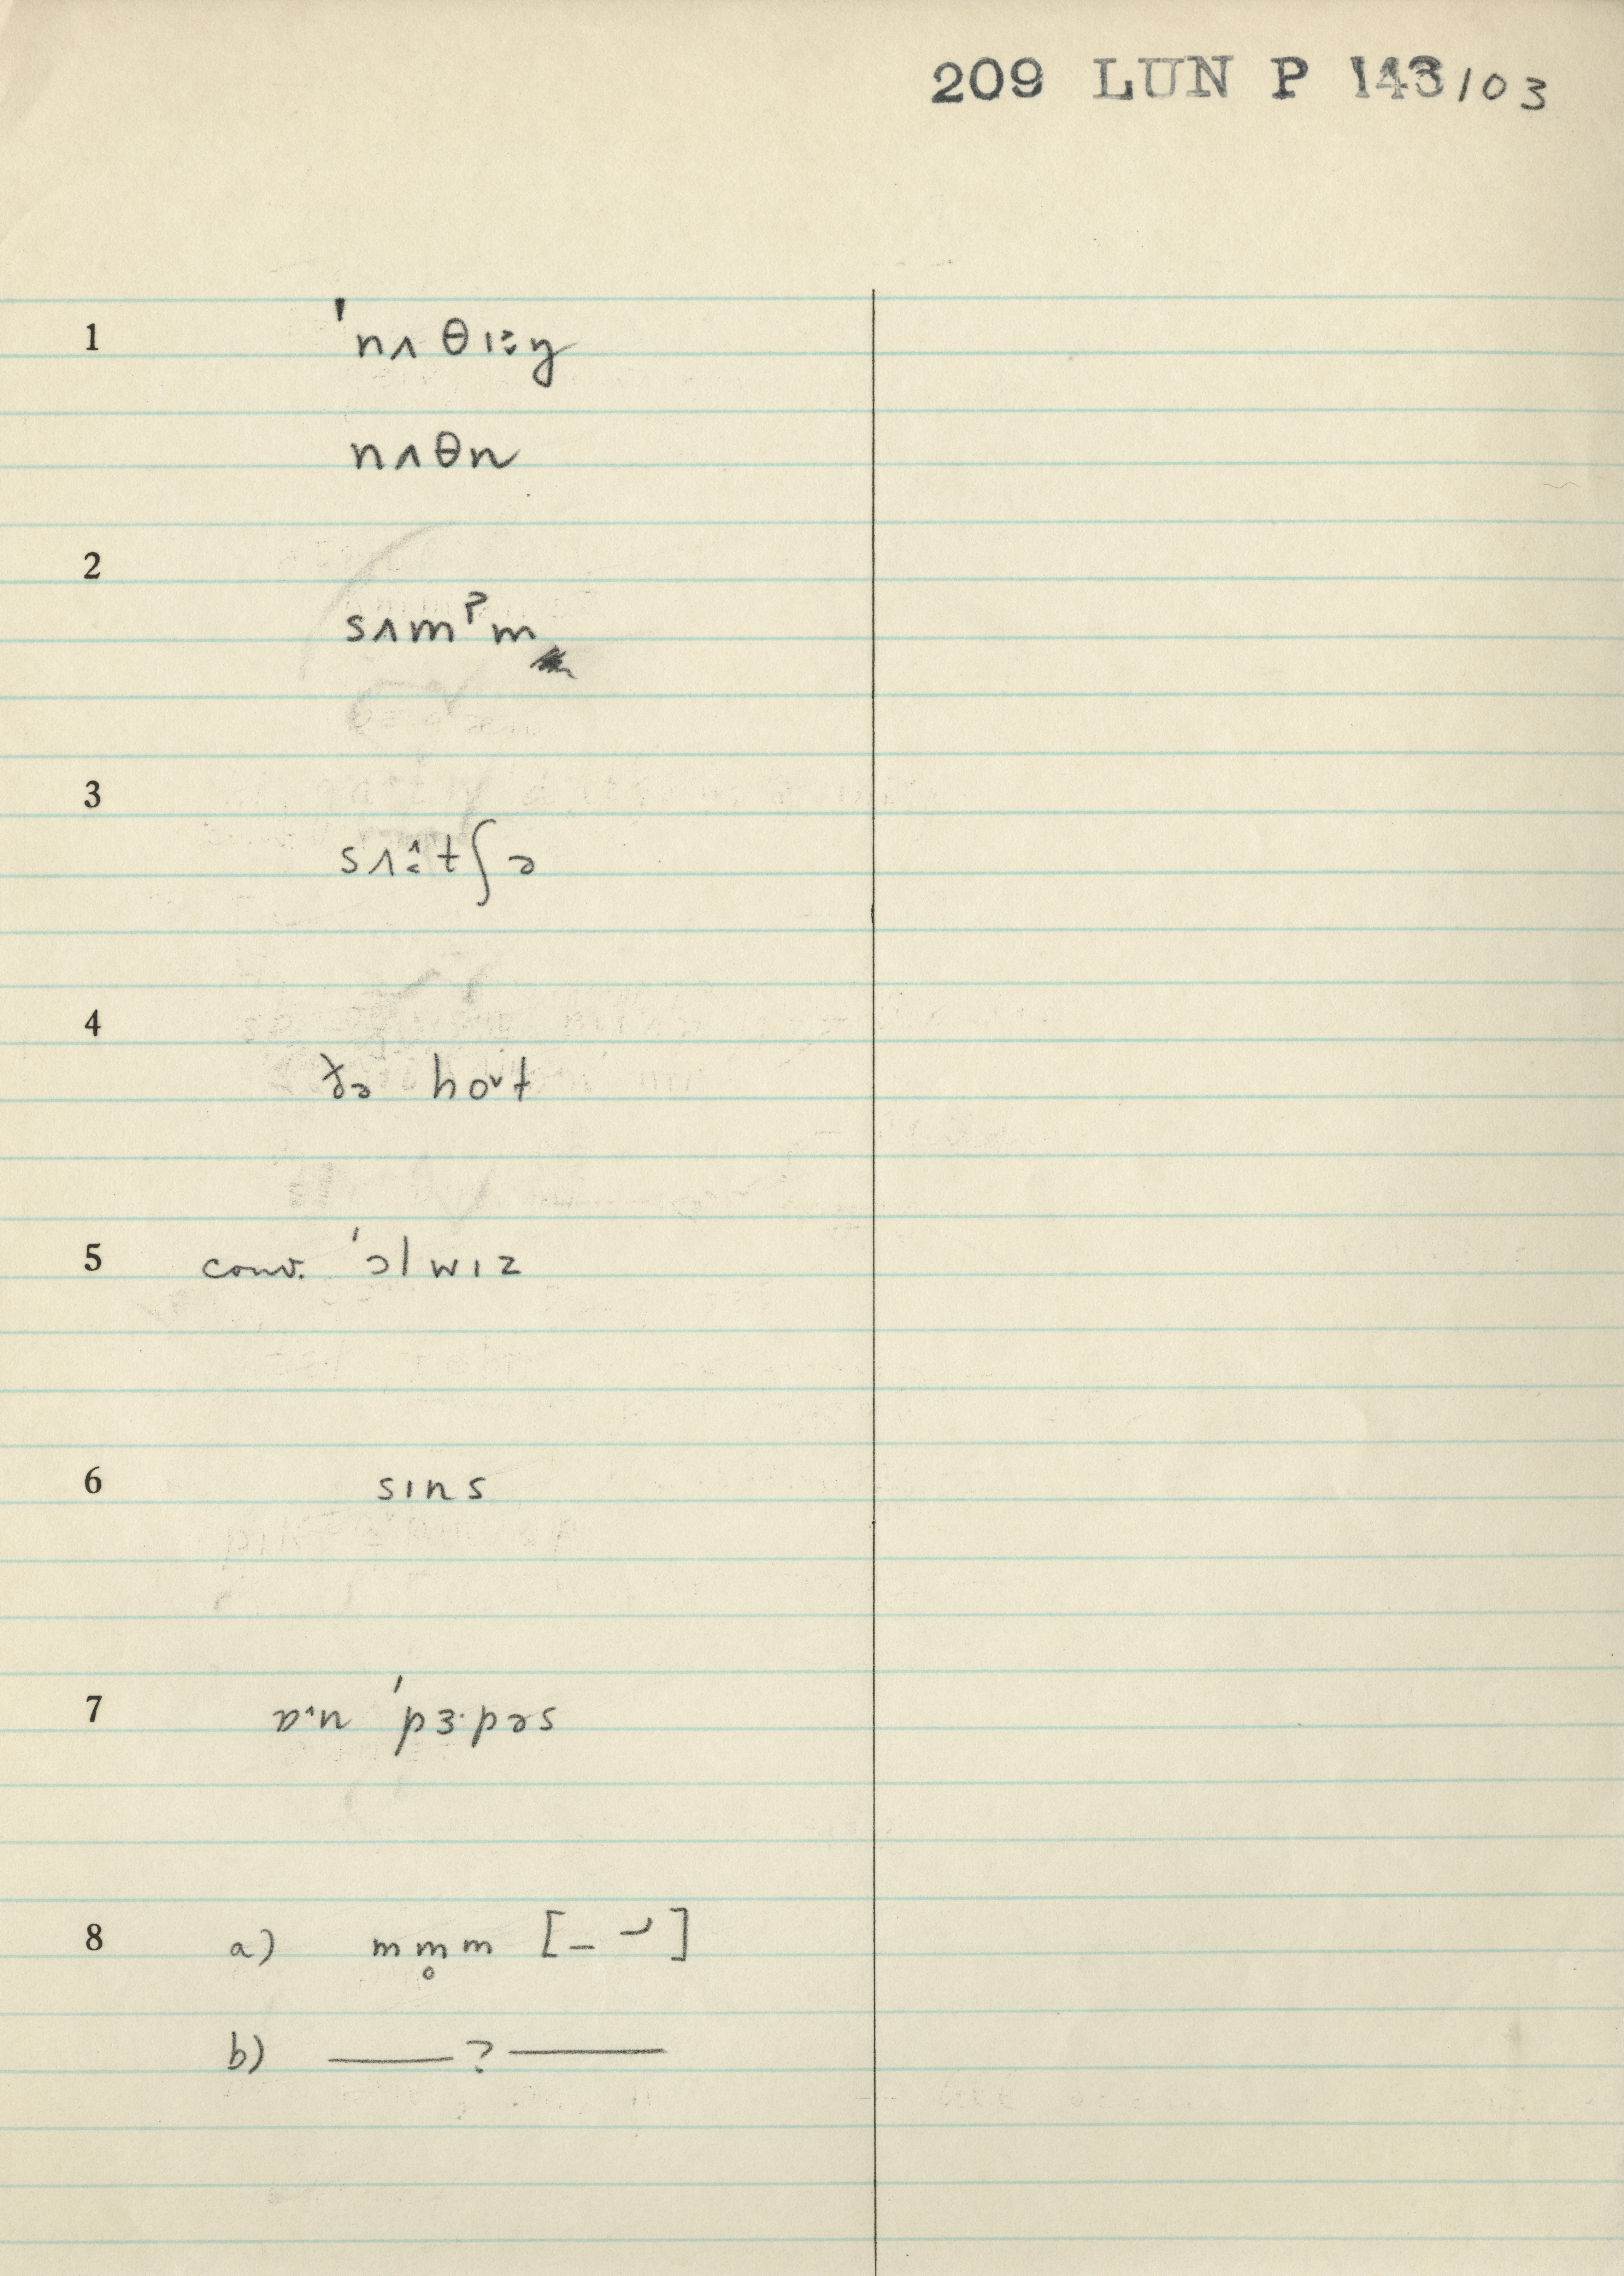 209 LUN P 143/03
1 'nʌθɪ≥y
nʌθn
2 sʌmᵖm
3 sʌ:tʃə
4 ðə hoᵛt
5 conv. 'ɔlwɪz
6 sɪns
7 ɒ·n 'pɜ·pəs
8 a) mm̥m [– ⁻╯]
b) —— ? ——